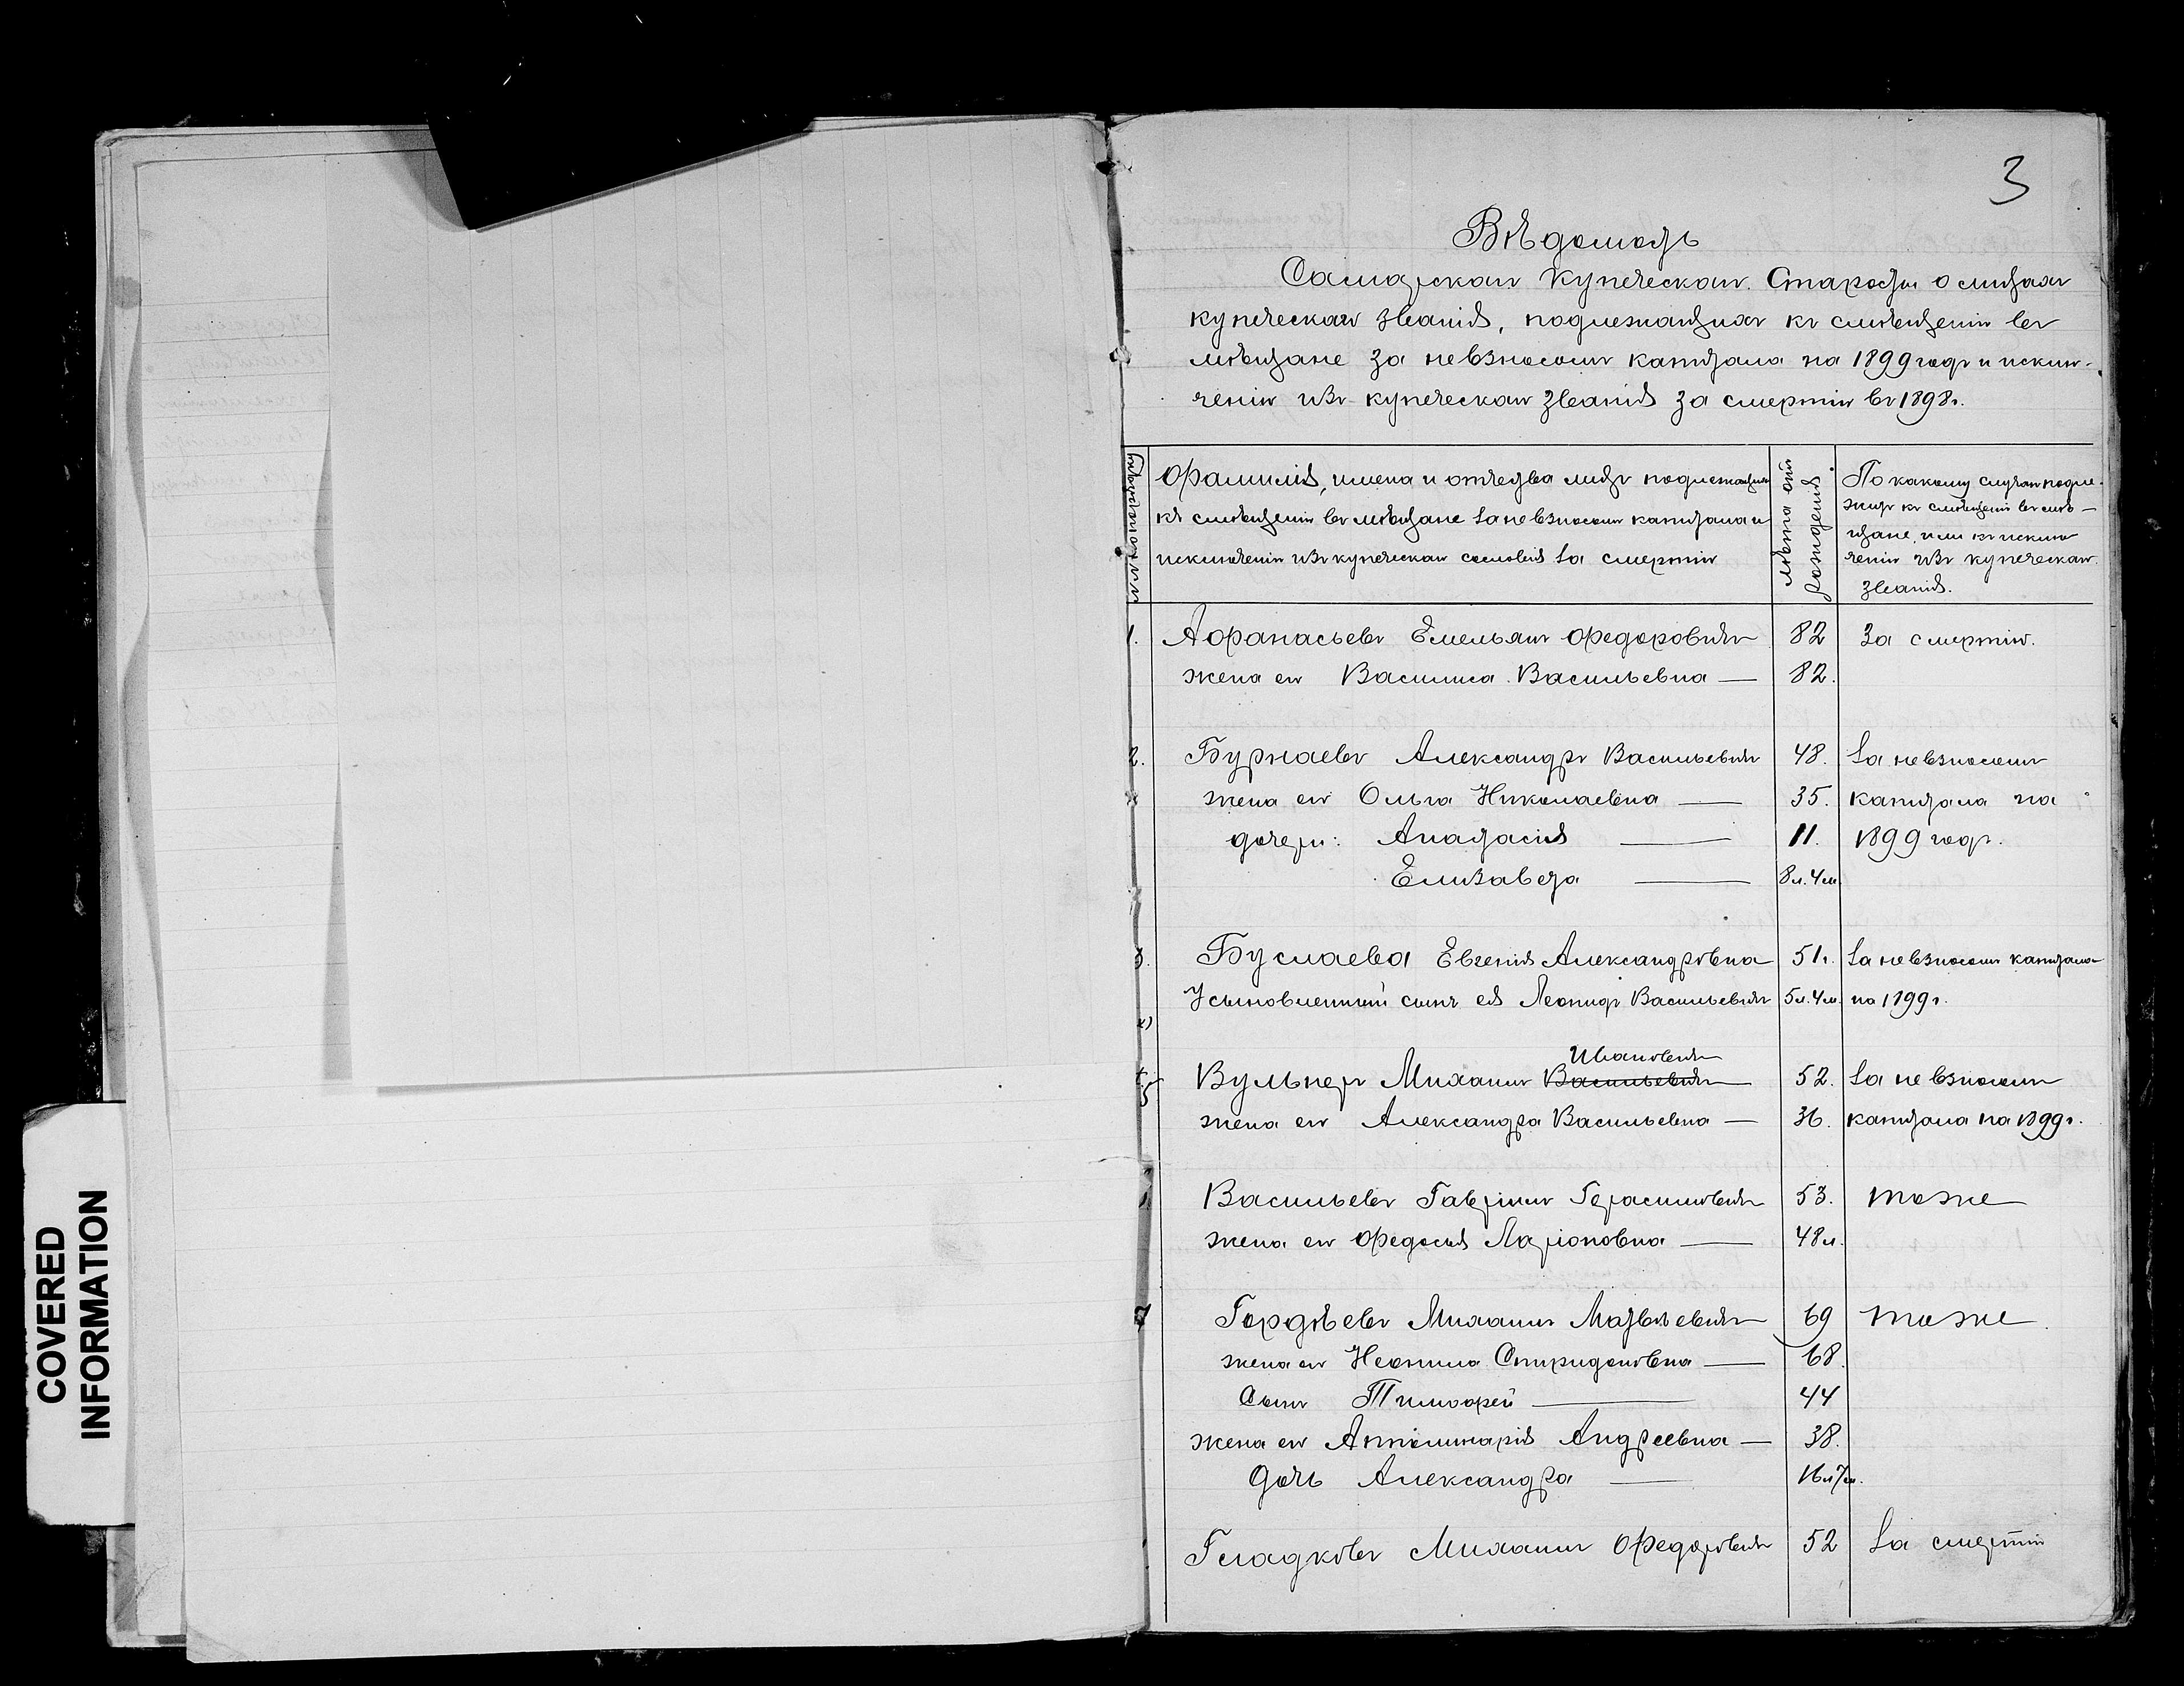 3
Вѣдомость
Самарскаго Купеческаго Старосты о лицахъ
купеческаго званія, подлежащихъ къ смѣщенію въ
мѣщане за невзносомъ капитала на 1899 годъ и исклю-
ченію изъ купеческаго званія за смертію въ 1898 г.
Фамилія, имена и отчества лицъ подлежащихъ
къ смѣщенію въ мѣщане за невзносомъ капитала и
исключенію изъ купеческаго сословія за смертію
Лѣта отъ рожденія
По какому случаю подле-
житъ къ смѣщенію въ мѣ-
щане, или къ исклю
ченію изъ купеческаго
званія.
1. Афанасьевъ Емельянъ Федоровичъ 82 За смертію.
жена его Васимиса Васильевна — 82.
2. Бурнаевъ Александръ Васильевичъ 48. За невзносомъ
жена его Ольга Николаевна — 35. капитала на
дочери: Анастасія — 11. 1899 годъ.
Елизавета — 8 л. 4 м.
3. Буслаева Евгенія Александровна 51 г. За невзносомъ капитала
Усыновленный сынъ ея Леонидъ Васильевичъ 5 л. 4 м. на 1899 г.
Ивановичъ
Вульперъ Михаилъ Васильевичъ — 52. За невзносомъ
жена его Александра Васильевна — 36. капитала на 1899 г.
Васильевъ Гавріилъ Герасимовичъ 53. тоже
жена его Федосья Ларіоновна — 48 л.
7 Гордѣевъ Михаилъ Матвѣевичъ 69 тоже.
жена его Неонила Спиридоновна — 68.
Сынъ Тимофей — 44
жена его Апполинарія Андреевна — 38.
дочь Александра — 16 л 7 м.
Гладковъ Михаилъ Федоровичъ 52 За смертію
COVERED
INFORMATION